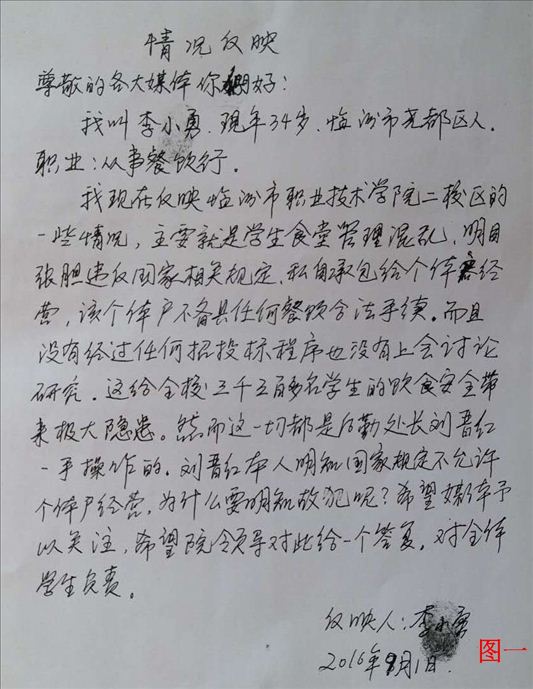 情况反映
尊敬的各大媒体你们好：
我叫李小勇.现年34岁.临汾市尧都区人.
职业：从事餐饮行.
我现在反映临汾市职业技术学院二校区的
一些情况，主要就是学生食堂管理混乱，明目
张胆违反国家相关规定，私自承包给个体户经
营，该个体户不备具任何餐饮合法手续.而且
没有经过任何招投标程序也没有上会讨论
研究.这给全校三千五百多名学生的饮食安全带
来极大隐患。然而这一切都是后勤处长刘晋红
一手操作的.刘晋红本人明知国家规定不允许
个体户经营，为什么要明知故犯呢？希望媒体予
以关注，希望院领导对此给一个答复，对全体
学生负责。
反映人：李小勇
2016年9月1日.
图一